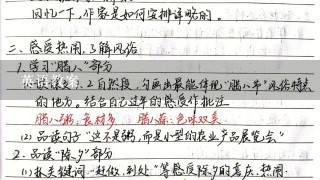 回忆一下,作家是如何安排详略的。
二、感受热闹,了解风俗
1.学习"腊八"部分
(1)读课文1、2自然段,勾画出最能体现"腊八节"风俗特点
的地方。结合自己过年的感受作批注
腊八粥:食材多 腊八蒜:色味双美
(2)品读句子"这不是粥,而是小型的农业产品展览会"
2.品读"除夕"部分
(1)抓关键词,"赶做、到处"等感受除夕的喜庆、热闹